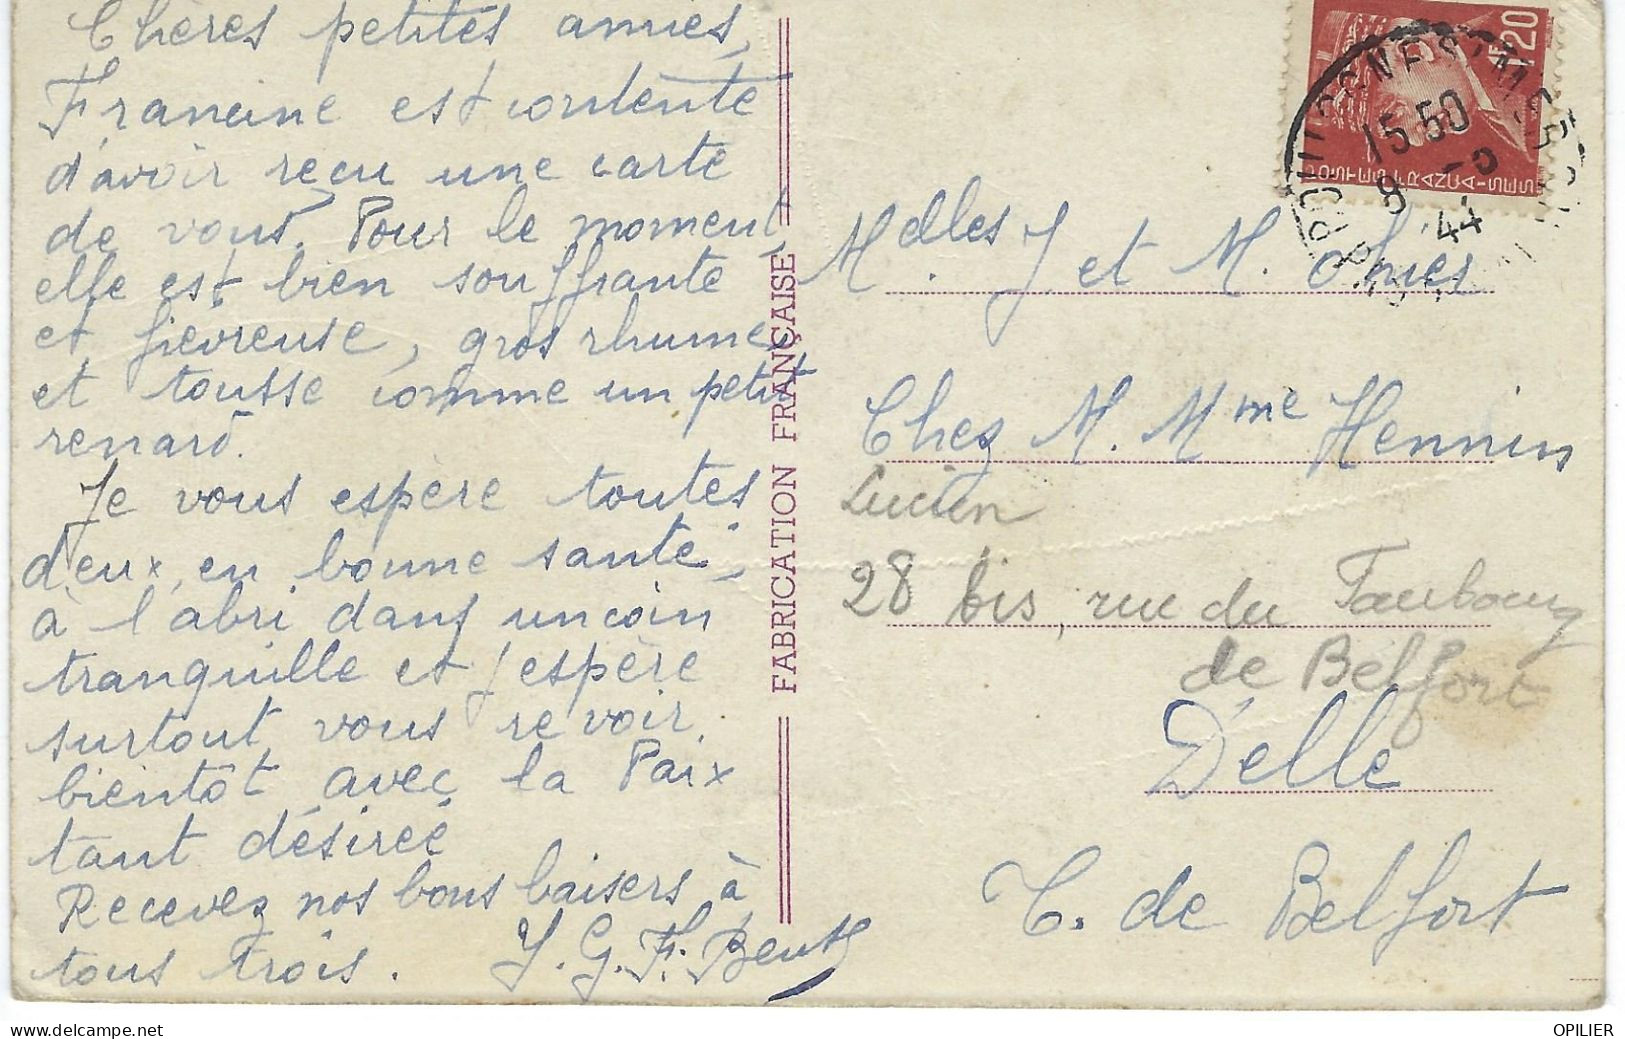 Chères petites amies,
Francine est contente
d'avoir reçu une carte
de vous. Pour le moment
elle est bien souffrante
et fiévreuse, gros rhume
et tousse comme un petit
renard.
Je vous espère toutes
deux, en bonne santé,
à l'abri dans un coin
tranquille et j'espère
surtout vous revoir
bientôt avec la Paix
tant désirée
Recevez nos bons baisers à
tous trois. Y. G. F. Bentz
FABRICATION FRANÇAISE
1F20
POSTES FRANÇAISES
15 50
8 -6
44
Mdlles J et M.
Chez M. Mme Hennin
Lucien
28 bis, rue du Faubourg
de Belfort
Delle
T. de Belfort
OPILIER
www.delcampe.net